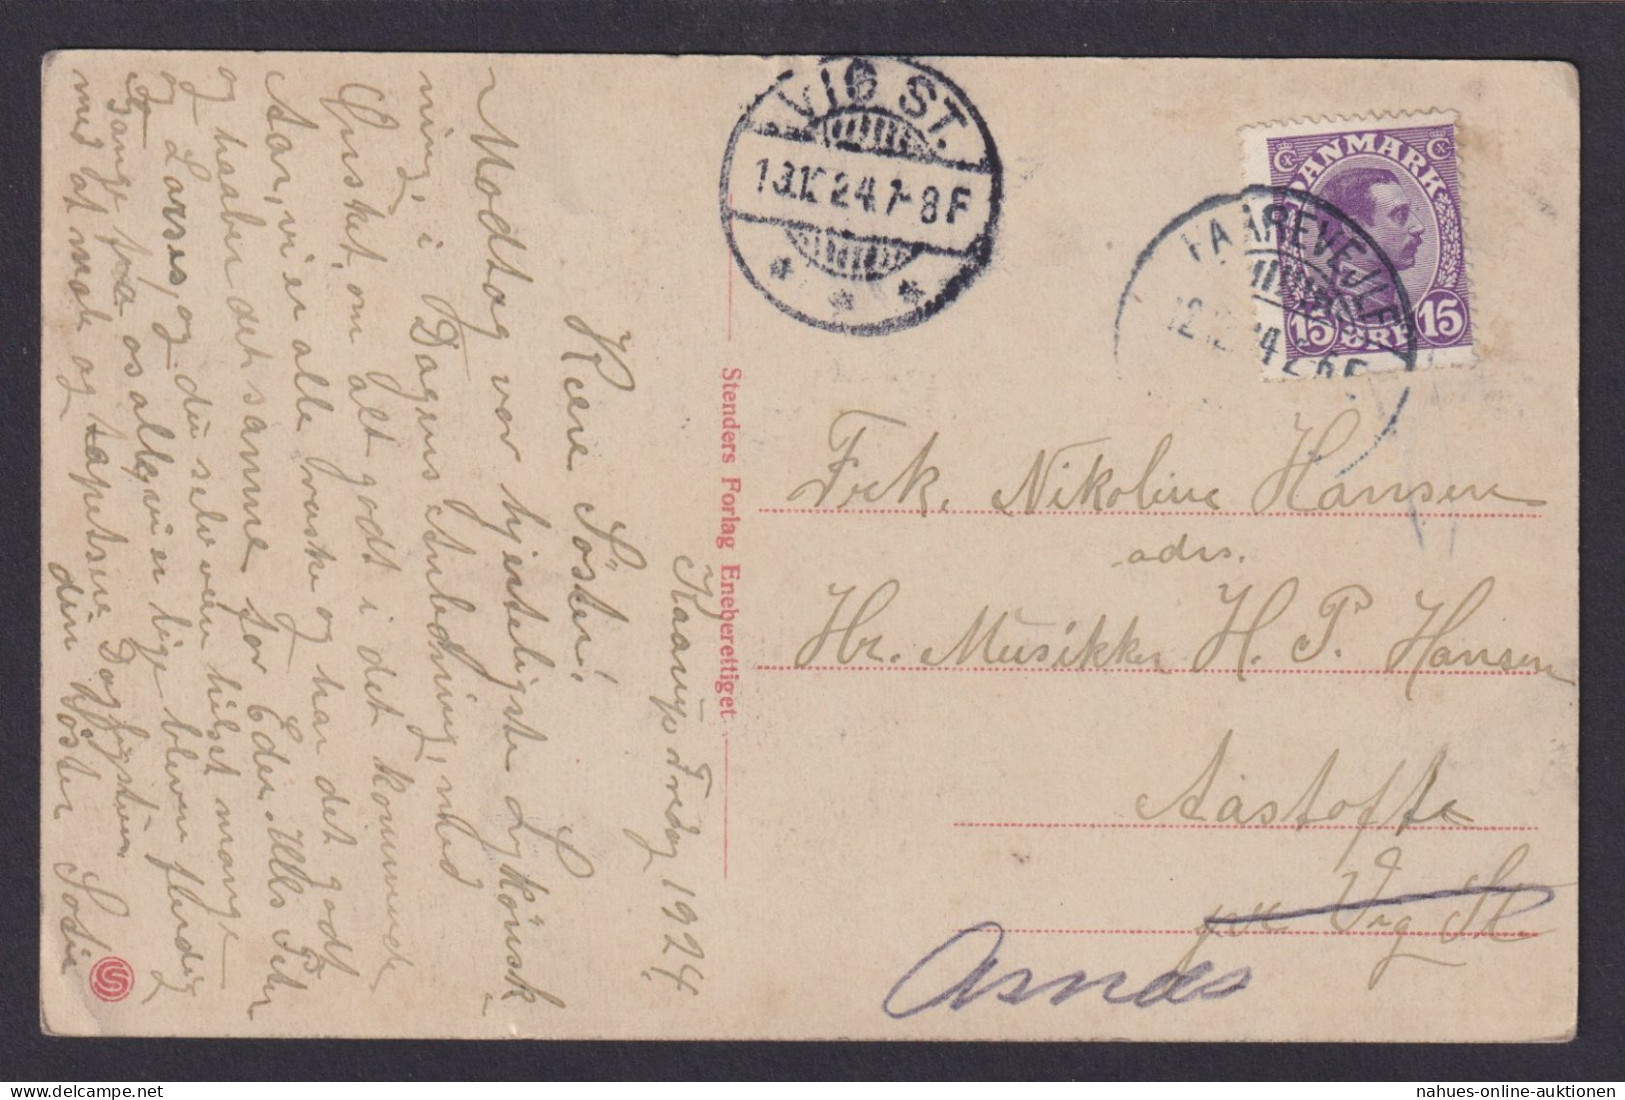 VIG ST.
13.10.24.7-8F
FAAREVEJLE
DANMARK
15 ØRE 15
Stenders Forlag Eneberettiget
Frk. Nikoline Hansen
adrs.
Hr. Musikker H. P. Hansen
Aastofte
pr Vig St.
Asnæs
Kaarup Fredag 1924.
Kære Søster!
Modtag vor hjerteligste Lykønsk
ning, i Dagens Anledning, med
Ønsket, om alt godt i det kommende
Aar, vi er alle raske og har det godt
og haaber det samme for Eder.
og Larses, og du selv være hilset mange
Gange fra os alle, vi er lige bleven færdig
med at male og tapetsere Dagligstuen
din Søster Sodie
nahues-online-auktionen